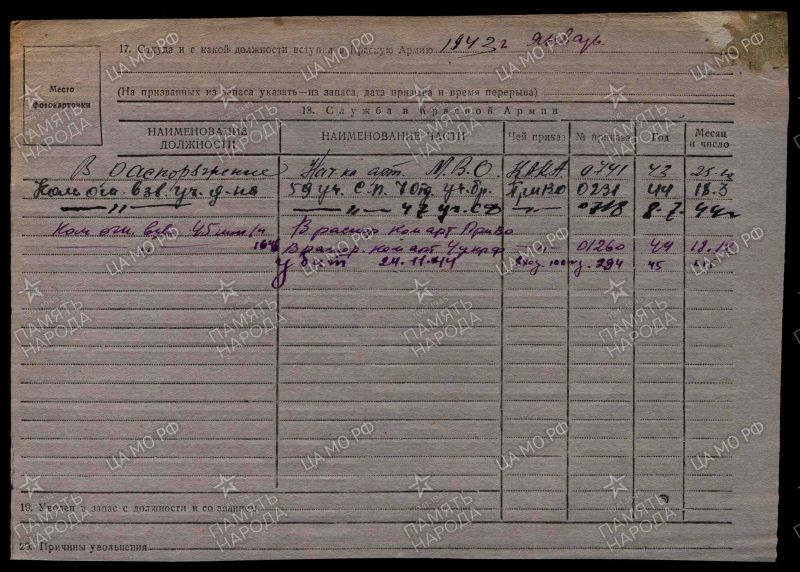 17. Откуда и с какой должности вступил в Красную Армию 1943 г январь
Место фотокарточки
(На призванных из запаса указать—из запаса, дата призыва и время перерыва)
18. Служба в Красной Армии
НАИМЕНОВАНИЕ ДОЛЖНОСТИ НАИМЕНОВАНИЕ ЧАСТИ Чей приказ № приказа Год Месяц и число
В распоряжение Нач-ка арт. М.В.О. КАКА 0741 43
Ком огн. взв. уч. д-на 59 уч. С.П. уч. бр. ПриВО 0231 44 18.3
— " — — " — 47 уч. СД — " — 8.7. 44г
Ком огн. взв. 45 мм В распор ком арт ПриВО
В распор. ком арт 4 укр.ф — " — 01260 44
убит 24.11.44 вход. 294 45
19. Уволен в запас с должности и со званием
20. Причины увольнения
ЦА МО РФ
ПАМЯТЬ НАРОДА